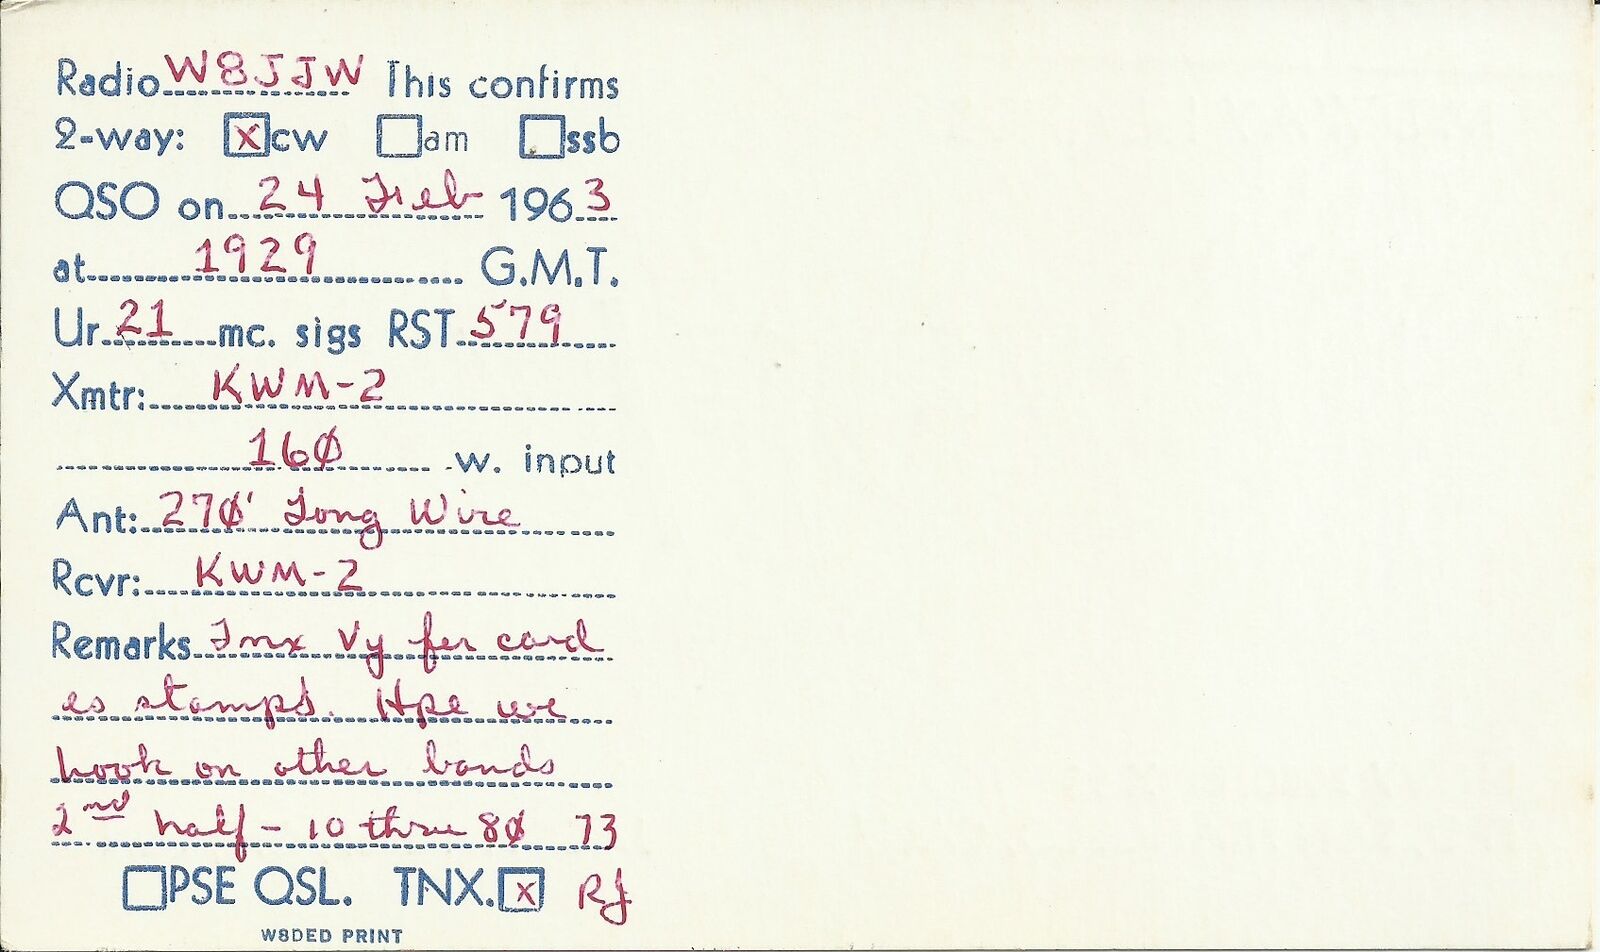 Radio W8JJW This confirms
2-way: [x] cw [ ] am [ ] ssb
QSO on 24 Feb 1963
at 1929 G.M.T.
Ur 21 mc. sigs RST 579
Xmtr: KWM-2
16Ø w. input
Ant: 27Ø' Long Wire
Rcvr: KWM-2
Remarks Tnx Vy fer card
es stamps. Hpe we
hook on other bands
2nd half - 10 thru 8Ø 73
[ ] PSE QSL. TNX. [x] RJ
W8DED PRINT